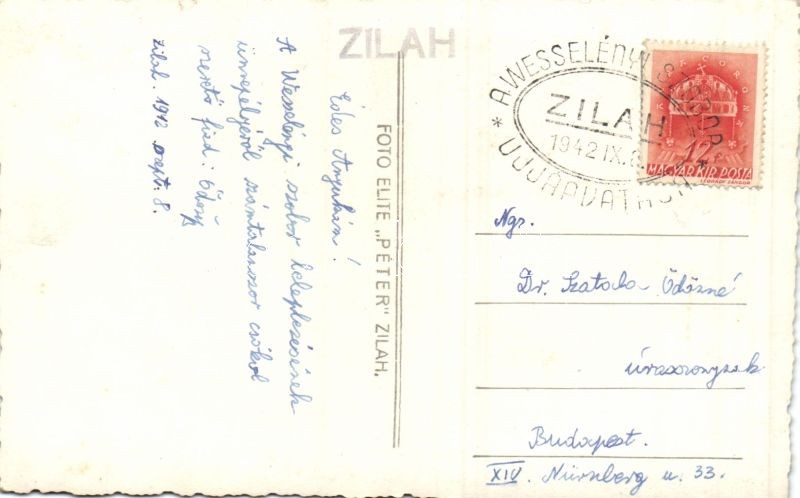 ZILAH
Édes Anyukám!
A Wesselényi szobor leleplezésének
ünnepélyéről számtalanszor csókol
szerető fiad: Ödönf
Zilah. 1942 szept. 8.
FOTO ELITE „PÉTER” ZILAH.
* A WESSELÉNYI SZOBOR *
ZILAH
1942 IX.
UJJÁAVATÁSA
12
MAGYAR KIR. POSTA
LÉGRÁDY SÁNDOR
Ngs.
Dr. Szatala Ödönné
úrasszonynak
Budapest.
XIV. Nürnberg u. 33.